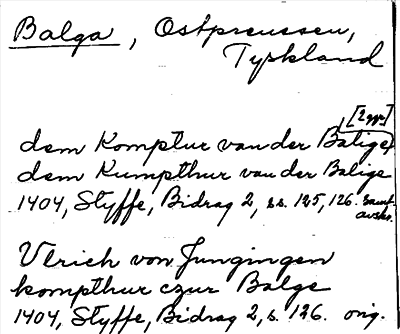 Balga, Ostpreussen,
Tyskland
[2 ggr]
dem Komptur van der Balige,
dem Kumpthur van der Balige
1404, Styffe, Bidrag 2, s.s. 125, 126. samt.
avskr.
Vlrich von Jungingen
kompthur czur Balge
1404, Styffe, Bidrag 2, s. 126. orig.